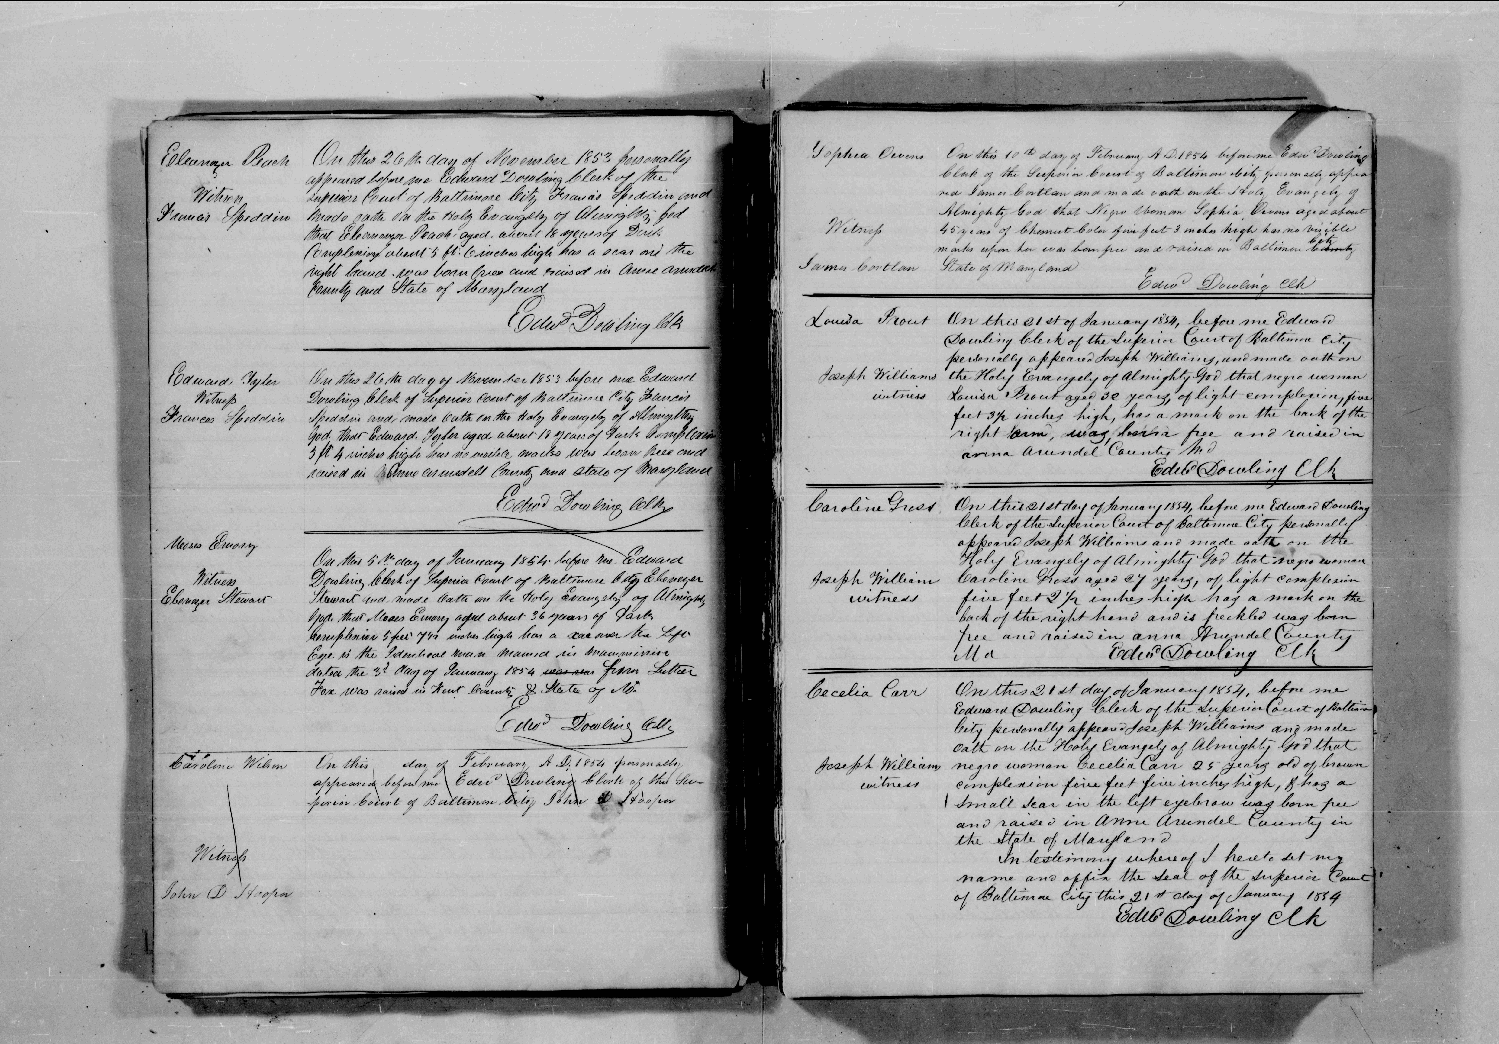 Eleanora Peach
Witness
Francis Speddin
On this 26th day of November 1853 personally
appeared before me Edward Dowling Clerk of the
Superior Court of Baltimore City Francis Speddin and
made oath on the Holy Evangely of Almighty god
that Eleanora Peach aged about years of Dark
Complexion about 5 ft 6 inches high has a scar on the
right hand was born free and raised in Anne arundel
County and State of Maryland
Edwd Dowling Clk
Edward Tyler
Witness
Frances Speddin
On this 26th day of November 1853 before me Edward
Dowling Clerk of Superior Court of Baltimore City Francis
Speddin and made oath on the Holy Evangely of Almighty
god that Edward Tyler aged about 18 years of Dark Complexion
5 ft 4 inches high has no visible marks was born free and
raised in Anne arundell County and state of Maryland
Edwd Dowling Clk
Moses Emory
Witness
Ebenezer Stewart
On this 5th day of January 1854 before me Edward
Dowling Clerk of Superior Court of Baltimore City Ebenezer
Stewart and made oath on the Holy Evangely of Almighty
god that Moses Emory aged about 36 years of Dark
Complexion 5 feet inches high has a scar over the Left
Eye is the Identical man named in manumission
dated the 3d day of January 1854 was from Luther
Fox was raised in Kent County & State of Md
Edwd Dowling Clk
Caroline Wilson
Witness
John D Hooper
On this day of February A.D. 1854 personally
appeared before me Edwd Dowling Clerk of the Su-
perior Court of Baltimore City John D Hooper
Sophia Owens
Witness
James Cortlan
On this 10th day of February A.D. 1854 before me Edwd Dowling
Clerk of the Superior Court of Baltimore City personally appea
red James Cortlan and made oath on the Holy Evangely of
Almighty God that Negro Woman Sophia Owens aged about
45 years of Chesnut Color five feet 3 inches high has no visible
marks upon her was born free and raised in Baltimore City County
State of Maryland
Edwd Dowling Clk
Louisa Prout
Joseph Williams
witness
On this 21st of January 1854, before me Edward
Dowling Clerk of the Superior Court of Baltimore City
personally appeared Joseph Williams, and made oath on
the Holy Evangely of Almighty God that negro woman
Louisa Prout aged 30 years, of light complexion, five
feet 3½ inches high, has a mark on the back of the
right arm, was born free and raised in
anna Arundel County Md
Edwd Dowling Clk
Caroline Gross
Joseph William
witness
On this 21st day of January 1854, before me Edward Dowling
Clerk of the Superior Court of Baltimore City personally
appeared Joseph Williams and made oath on the
Holy Evangely of Almighty God that negro woman
Caroline Gross aged 27 years, of light complexion
five feet 2½ inches high has a mark on the
back of the right hand and is freckled was born
free and raised in anna Arundel County
Md Edwd Dowling Clk
Cecelia Carr
Joseph William
witness
On this 21st day of January 1854, before me
Edward Dowling Clerk of the Superior Court of Baltimore
City personally appeared Joseph Williams and made
oath on the Holy Evangely of Almighty God that
negro woman Cecelia Carr 25 years old of brown
complexion five feet five inches high, & has a
small scar in the left eyebrow was born free
and raised in Anne Arundel County in
the State of Maryland
In testimony whereof I hereto set my
name and affix the seal of the Superior Court
of Baltimore City this 21st day of January 1854
Edwd Dowling Clk